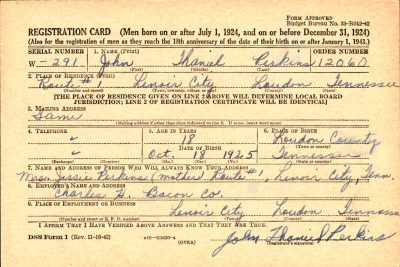 FORM APPROVED
Budget Bureau No. 33-R012-42
REGISTRATION CARD (Men born on or after July 1, 1924, and on or before December 31, 1924)
(Also for the registration of men as they reach the 18th anniversary of the date of their birth on or after January 1, 1943.)
SERIAL NUMBER 1. NAME (Print)
W-291 John Thaniel Perkins 12060
2. PLACE OF RESIDENCE (Print)
Route #1 Lenoir City Loudon Tennessee
[THE PLACE OF RESIDENCE GIVEN ON LINE 2 ABOVE WILL DETERMINE LOCAL BOARD
JURISDICTION; LINE 2 OF REGISTRATION CERTIFICATE WILL BE IDENTICAL]
3. MAILING ADDRESS
Same
4. TELEPHONE 5. AGE IN YEARS 6. PLACE OF BIRTH
" 18 Loudon County
DATE OF BIRTH (Town or county)
" Oct. 19 1925 Tennessee
(Exchange) (Number) (Mo.) (Day) (Yr.) (State or country)
7. NAME AND ADDRESS OF PERSON WHO WILL ALWAYS KNOW YOUR ADDRESS
Mrs. Jessie Perkins (mother) Route #1, Lenoir City, Tenn.
8. EMPLOYER'S NAME AND ADDRESS
Charles H. Bacon Co.
9. PLACE OF EMPLOYMENT OR BUSINESS
Lenoir City Loudon Tennessee
(Number and street or R. F. D. number) (Town) (County) (State)
I AFFIRM THAT I HAVE VERIFIED ABOVE ANSWERS AND THAT THEY ARE TRUE.
DSS Form 1 (Rev. 11-16-42) (OVER) John Thaniel Perkins
(Registrant's signature)